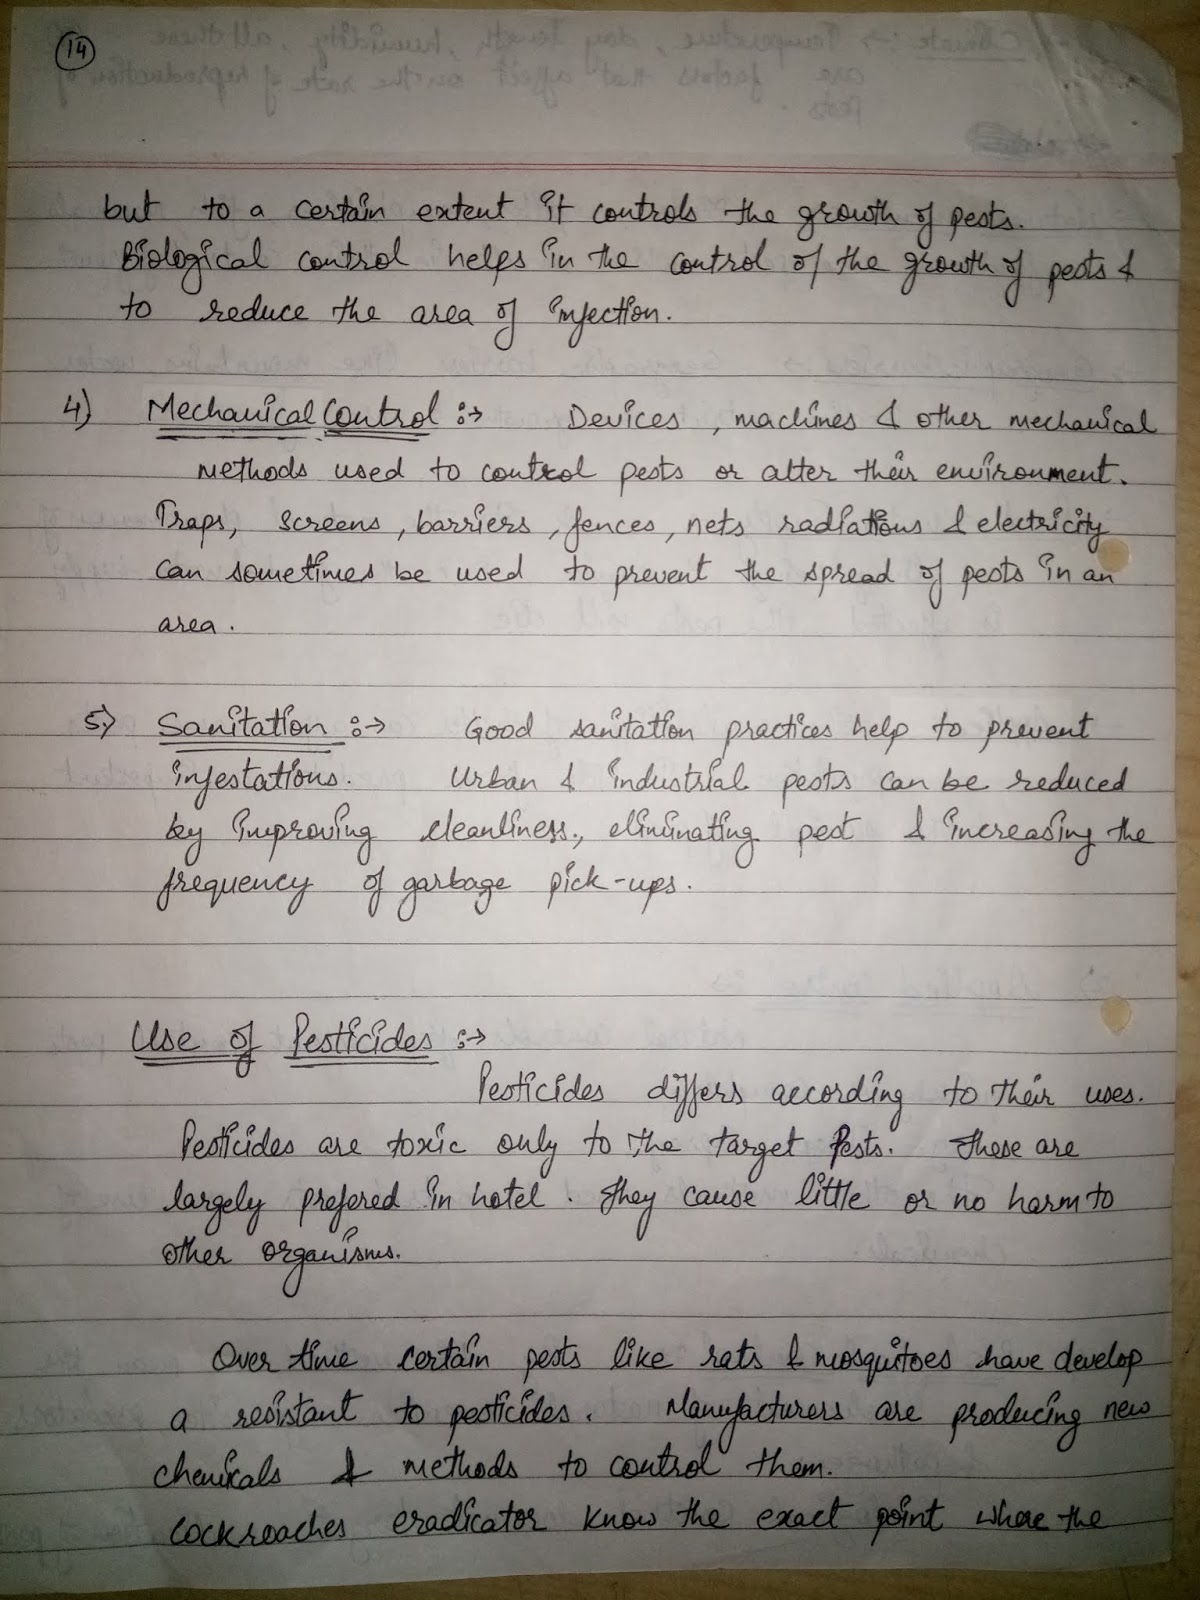 14
but to a certain extent it controls the growth of pests.
Biological control helps in the control of the growth of pests &
to reduce the area of infection.
4) Mechanical Control :→ Devices, machines & other mechanical
methods used to control pests or alter their environment.
Traps, screens, barriers, fences, nets radiations & electricity
can sometimes be used to prevent the spread of pests in an
area.
5) Sanitation :→ Good sanitation practices help to prevent
infestations. Urban & industrial pests can be reduced
by improving cleanliness, eliminating pest & increasing the
frequency of garbage pick-ups.
Use of Pesticides :→
Pesticides differs according to their uses.
Pesticides are toxic only to the target Pests. These are
largely prefered in hotel. They cause little or no harm to
other organisms.
Over time certain pests like rats & mosquitoes have develop
a resistant to pesticides. Manufacturers are producing new
chemicals & methods to control them.
Cockroaches eradicator know the exact point where the